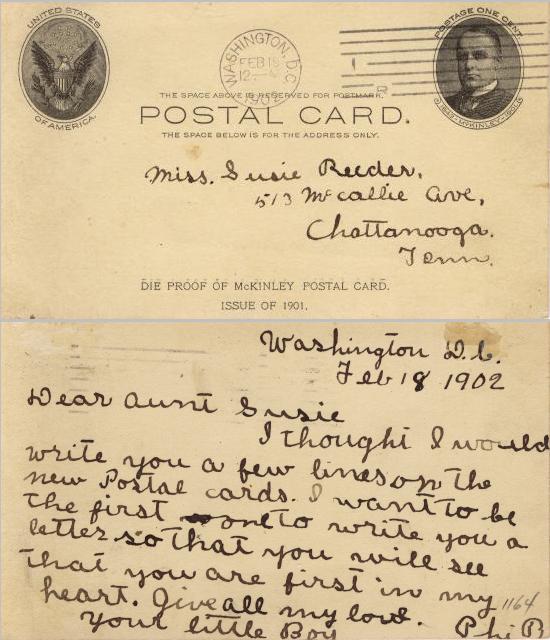 UNITED STATES
OF AMERICA.
WASHINGTON, D.C.
FEB 18
1902
POSTAGE ONE CENT.
1843-McKINLEY-1901
THE SPACE ABOVE IS RESERVED FOR POSTMARK.
POSTAL CARD.
THE SPACE BELOW IS FOR THE ADDRESS ONLY.
Miss. Susie Reeder.
513 McCallie Ave,
Chattanooga.
Tenn.
DIE PROOF OF McKINLEY POSTAL CARD.
ISSUE OF 1901.
Washington D.C.
Feb 18 1902
Dear Aunt Susie
I thought I would
write you a few lines on the
new Postal cards. I want to be
the first one to write you a
letter so that you will see
that you are first in my
heart. Give all my love.
1164
Your little Boy Phi B